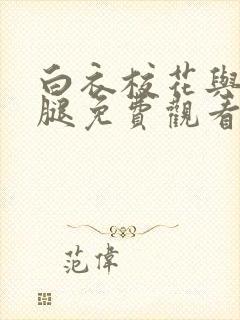 白衣校花與
腿免費觀看
范偉